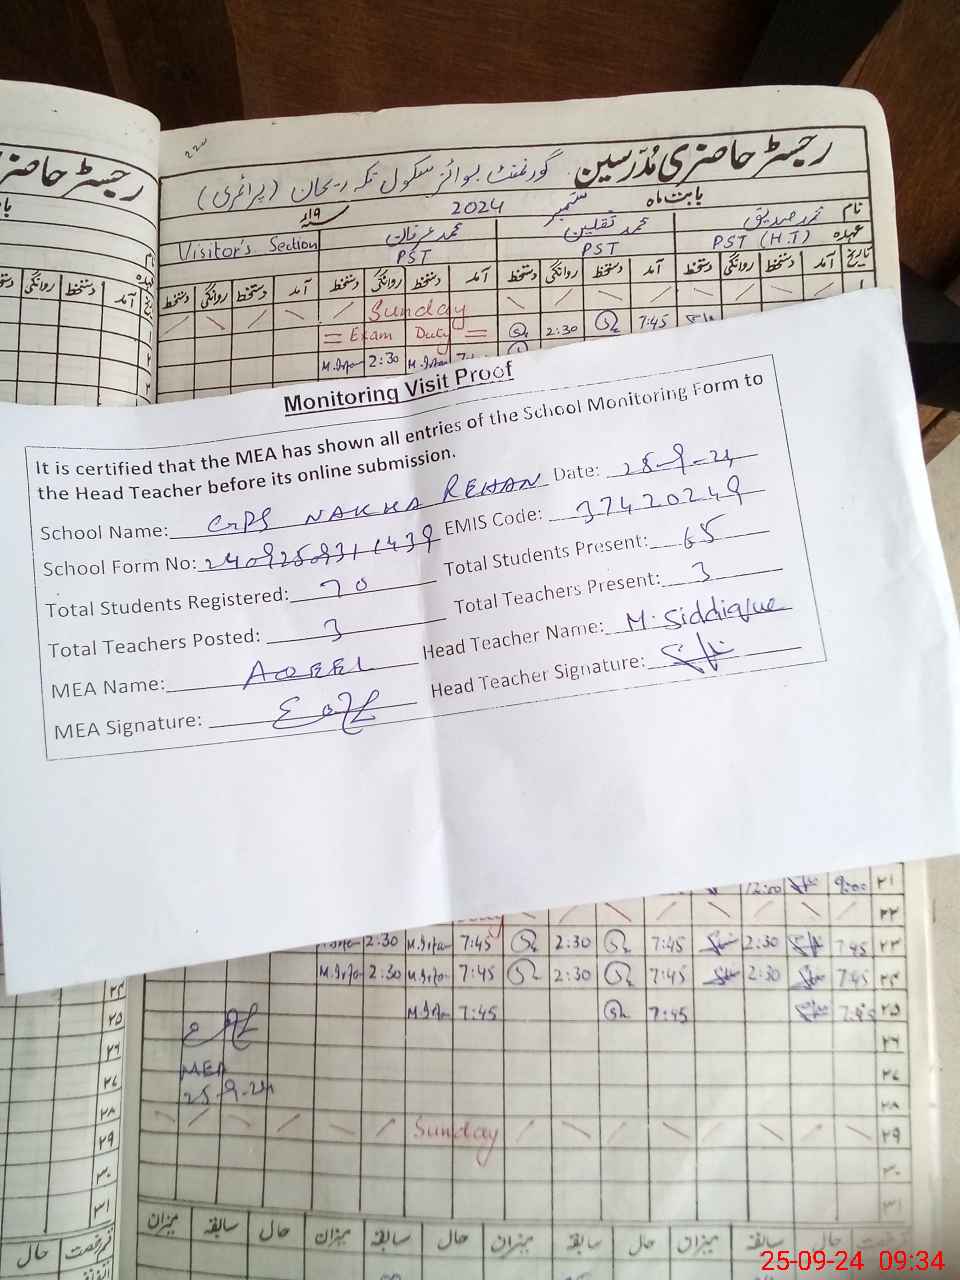 رجسٹر حاضری مُدرّسین گورنمنٹ بوائز سکول نکہ ریحان (پرائمری)
رجسٹر حاضری
بابت ماہ ستمبر 2024
نام محمد صدیق محمد ثقلین محمد عرفان Visitor's Section
عہدہ PST (H.T) PST PST
تاریخ آمد دستخط روانگی دستخط آمد دستخط روانگی دستخط آمد دستخط روانگی دستخط آمد دستخط روانگی دستخط
Sunday
7:45 2:30 = Exam Duty =
M.Irfan 2:30 M.Irfan
Monitoring Visit Proof
It is certified that the MEA has shown all entries of the School Monitoring Form to
the Head Teacher before its online submission.
School Name: GPS NAKKA REHAN Date: 25-9-24
School Form No: 24092509311439 EMIS Code: 37420249
Total Students Registered: 70 Total Students Present: 65
Total Teachers Posted: 3 Total Teachers Present: 3
MEA Name: AQEEL Head Teacher Name: M. Siddique
MEA Signature: Head Teacher Signature:
۲۱ 9:00 12:00
۲۲
۲۳ 7:45 2:30 7:45 2:30 7:45 M.Irfan 2:30
۲۴ 7:45 2:30 7:45 2:30 7:45 M.Irfan 2:30 M.Irfan
۲۵ 7:45 7:45 7:45 M.Irfan
۲۶
MEA
۲۷
25-9-24
۲۸
۲۹ Sunday
۳۰
۳۱
حال سابقہ میزان حال سابقہ میزان حال سابقہ میزان حال سابقہ میزان
25-09-24 09:34